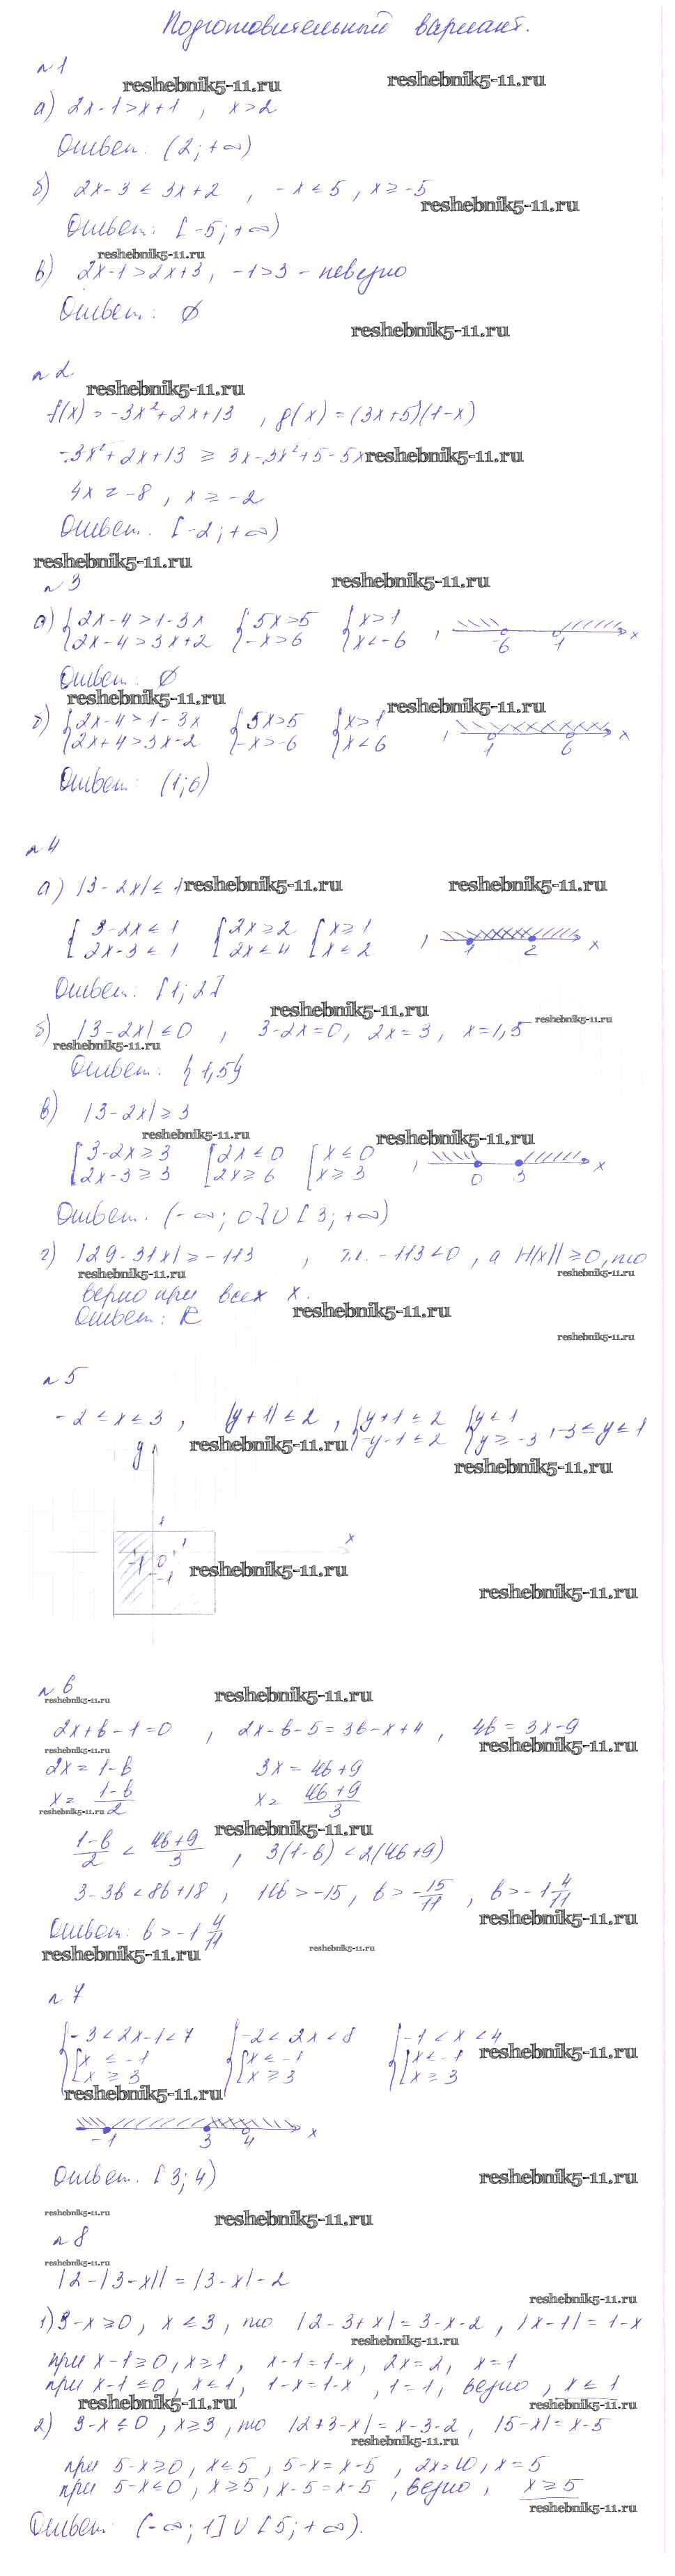 Подготовительный вариант.
№1
reshebnik5-11.ru reshebnik5-11.ru
а) 2x-1>x+1 , x>2
Ответ: (2;+∞)
б) 2x-3≤3x+2 , -x≤5, x≥-5
reshebnik5-11.ru
Ответ: [-5;+∞)
reshebnik5-11.ru
в) 2x-1>2x+3, -1>3 - неверно
Ответ: ∅
reshebnik5-11.ru
№2
reshebnik5-11.ru
f(x)=-3x²+2x+13 , g(x)=(3x+5)(1-x)
-3x²+2x+13 ≥ 3x-3x²+5-5x reshebnik5-11.ru
4x≥-8, x≥-2
Ответ. [-2;+∞)
reshebnik5-11.ru reshebnik5-11.ru
№3
а) {2x-4>1-3x {5x>5 {x>1
{2x-4>3x+2 {-x>6 {x<-6 , -6 1 x
Ответ: ∅
reshebnik5-11.ru reshebnik5-11.ru
б) {2x-4>1-3x {5x>5 {x>1
{2x+4>3x-2 {-x>-6 {x<6 , 1 6 x
Ответ: (1;6)
№4
а) |3-2x|≤1 reshebnik5-11.ru reshebnik5-11.ru
{3-2x≤1 {2x≥2 {x≥1
{2x-3≤1 {2x≤4 {x≤2 , 1 2 x
Ответ: [1;2]
reshebnik5-11.ru
б) |3-2x|≤0 , 3-2x=0, 2x=3, x=1,5 reshebnik5-11.ru
reshebnik5-11.ru
Ответ: {1,5}
в) |3-2x|≥3
reshebnik5-11.ru reshebnik5-11.ru
[3-2x≥3 [2x≤0 [x≤0
[2x-3≥3 [2x≥6 [x≥3 , 0 3 x
Ответ. (-∞;0]U[3;+∞)
г) |29-31x|≥-113 , т.к. -113<0, а |f(x)|≥0, то
reshebnik5-11.ru reshebnik5-11.ru
верно при всех x.
Ответ: R reshebnik5-11.ru
reshebnik5-11.ru
№5
-2≤x≤3, |y+1|≤2, {y+1≤2 {y≤1
{-y-1≤2 {y≥-3 , -3≤y≤1
reshebnik5-11.ru
reshebnik5-11.ru
y
1
x
-1 0 1
-1
reshebnik5-11.ru
reshebnik5-11.ru
№6
reshebnik5-11.ru reshebnik5-11.ru
2x+b-1=0 , 2x-b-5=3b-x+4, 4b=3x-9
reshebnik5-11.ru reshebnik5-11.ru
2x=1-b 3x=4b+9
x=(1-b)/2 x=(4b+9)/3
reshebnik5-11.ru
reshebnik5-11.ru
(1-b)/2 < (4b+9)/3 , 3(1-b)<2(4b+9)
3-3b<8b+18, 11b>-15, b>-15/11, b>-1 4/11
reshebnik5-11.ru
Ответ: b>-1 4/11
reshebnik5-11.ru reshebnik5-11.ru
№7
{-3<2x-1<7 {-2<2x<8 {-1<x<4
{[x≤-1 {[x≤-1 {[x≤-1 reshebnik5-11.ru
[x≥3 [x≥3 [x≥3
reshebnik5-11.ru
-1 3 4 x
Ответ. [3;4)
reshebnik5-11.ru
reshebnik5-11.ru reshebnik5-11.ru
№8
reshebnik5-11.ru
|2-|3-x||=|3-x|-2
reshebnik5-11.ru
1) 3-x≥0, x≤3, то |2-3+x|=3-x-2, |x-1|=1-x
reshebnik5-11.ru
при x-1≥0, x≥1, x-1=1-x, 2x=2, x=1
при x-1≤0, x≤1, 1-x=1-x, 1=1, верно, x≤1
reshebnik5-11.ru reshebnik5-11.ru
2) 3-x≤0, x≥3, то |2+3-x|=x-3-2, |5-x|=x-5
reshebnik5-11.ru
при 5-x≥0, x≤5, 5-x=x-5, 2x=10, x=5
при 5-x≤0, x≥5, x-5=x-5, верно, x≥5
reshebnik5-11.ru
Ответ: (-∞;1]U[5;+∞).